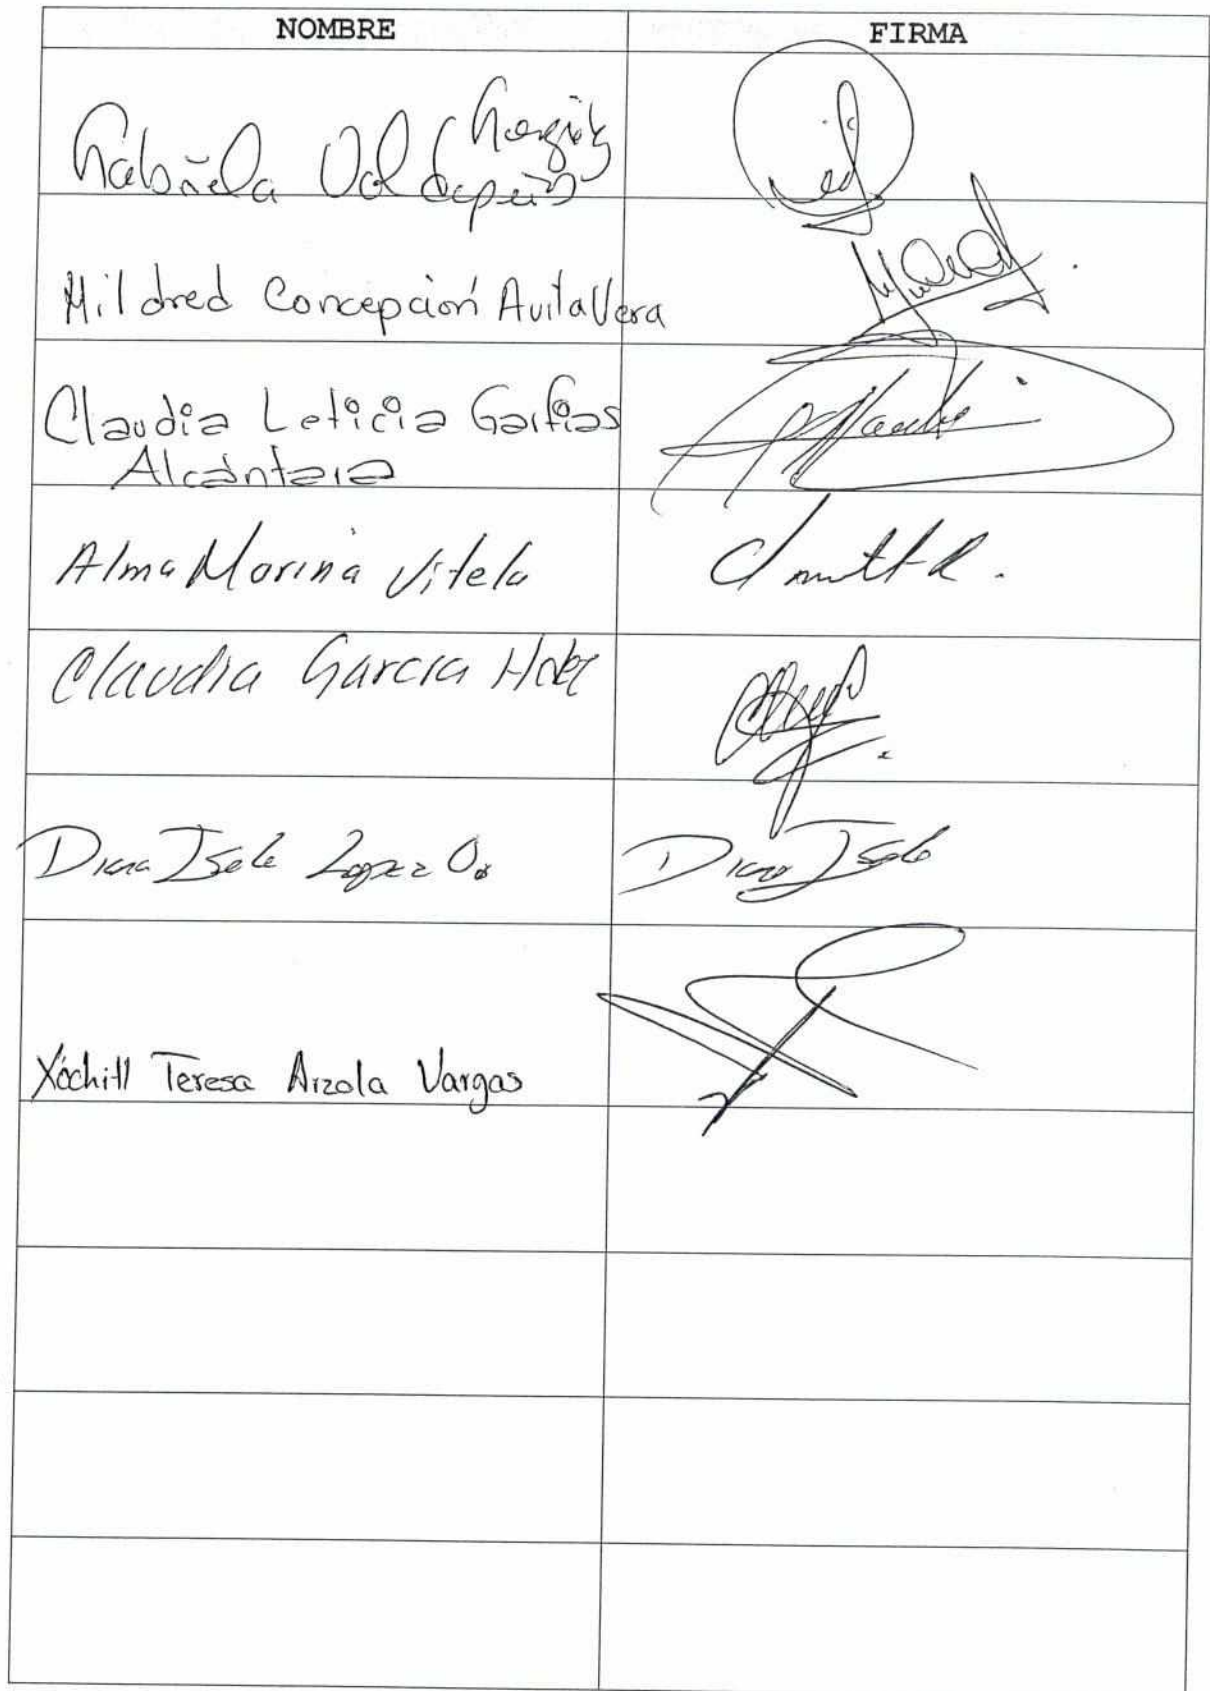 NOMBRE FIRMA
Gabriela Valdepeña
Mildred Concepción Avila Vera
Claudia Leticia Garfias
Alcántara
Alma Marina Vitela
Claudia Garcia Hdez
Diana Isela Lopez O. Diana Isela
Xóchitl Teresa Arzola Vargas